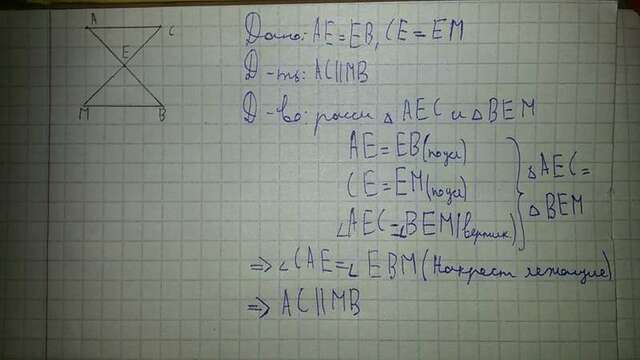 A
C
E
M
B
Дано: AE = EB, CE = EM
Д-ть: AC || MB
Д-во: рассм △AEC и △BEM
AE = EB (по усл)
CE = EM (по усл)
∠AEC = ∠BEM (вертик.)
△AEC =
△BEM
=> ∠CAE = ∠EBM (Накрест лежащие)
=> AC || MB